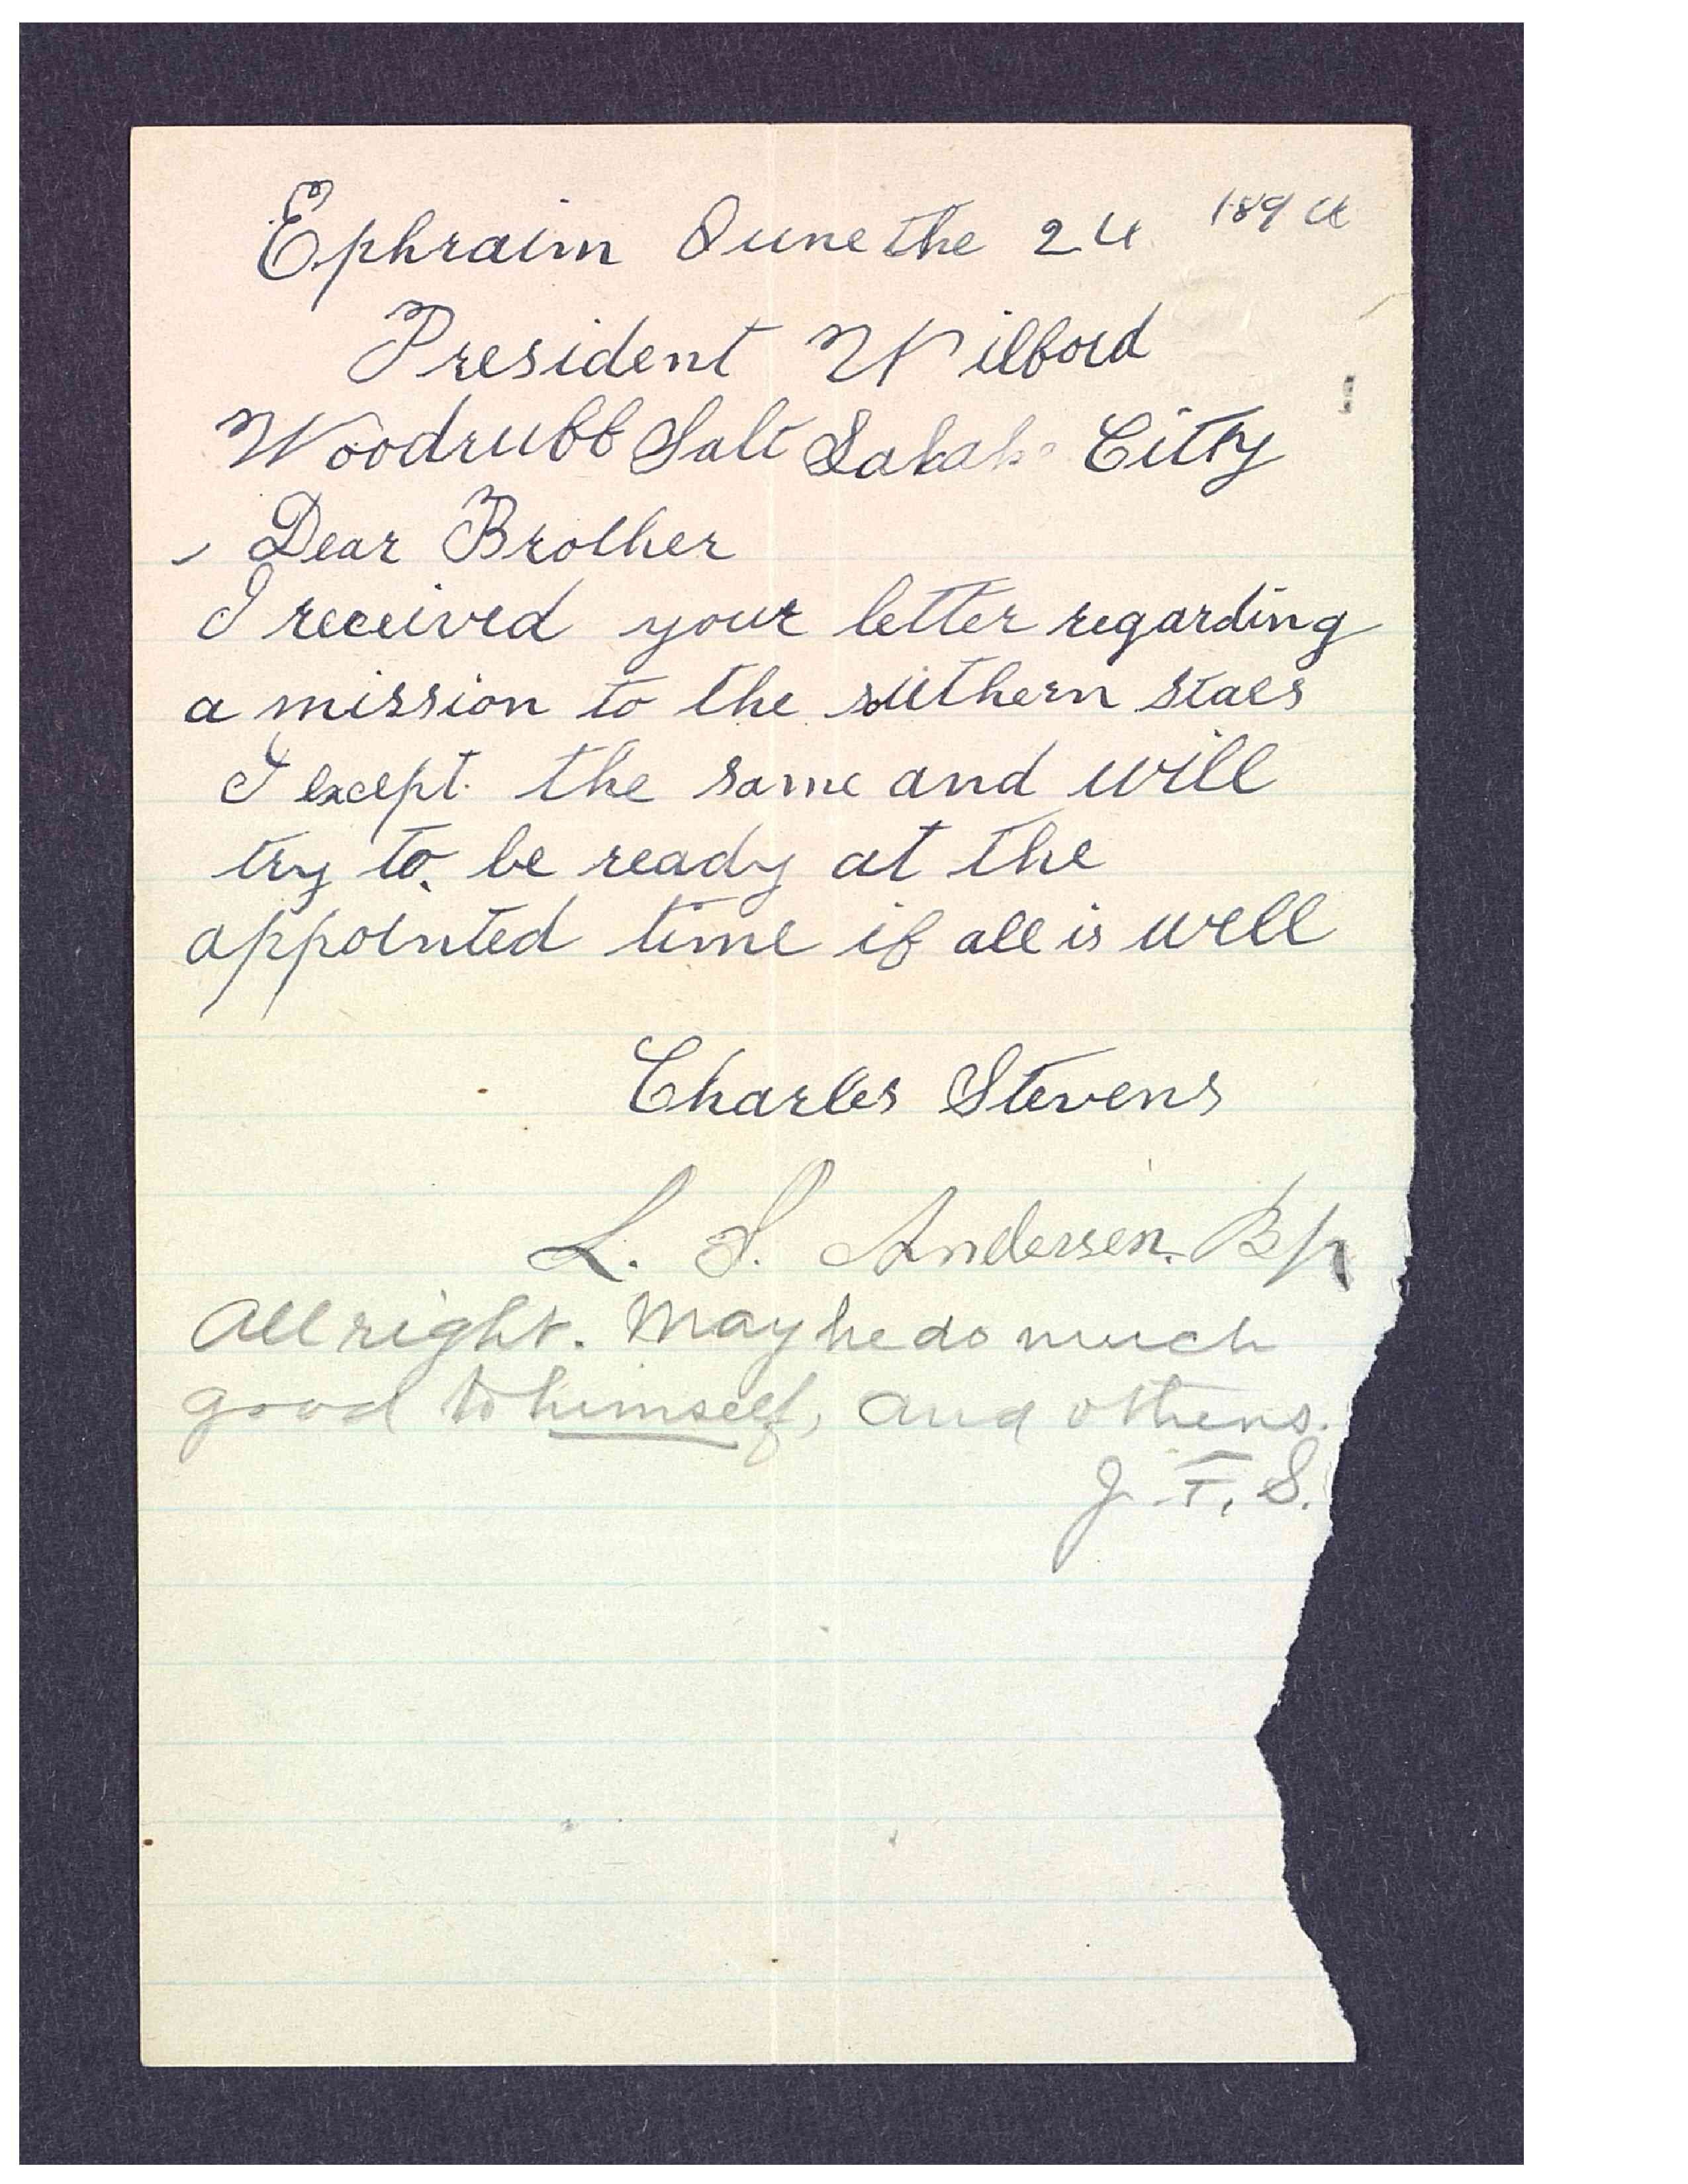 Ephraim June the 24 1894
President Wilford
Woodruff Salt City
Dear Brother
I received your letter regarding
a mission to the suthern staes
I except the same and will
try to be ready at the
appointed time if all is well
Charles Stevens
L. S. Andersen. Bp
All right. May he do much
good to himself, and others.
J. F. S.